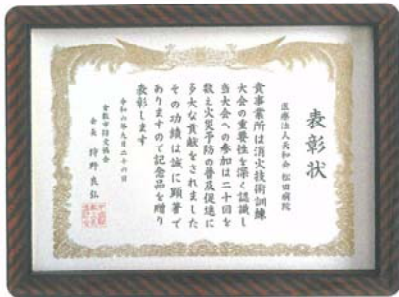 表彰状
医療法人天和会 松田病院
貴事業所は消火技術訓練
大会の重要性を深く認識し
当大会への参加は二十回を
数え火災予防の普及促進に
多大な貢献をされました
その功績は誠に顕著で
ありますので記念品を贈り
表彰します
令和六年九月二十六日
倉敷市防火協会
会長 狩野良弘